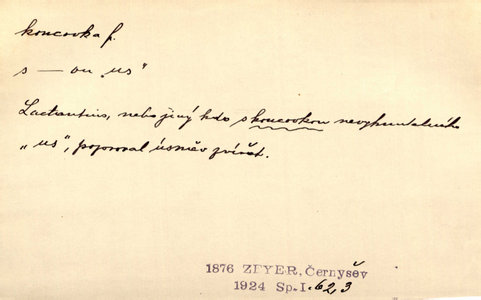 koncovka f.
s — ou „us"
Lactantius, nebo jiný kdo s koncovkou nevyhnutelného
„us", pozoroval úsměv zvířat.
1876 ZEYER, Černyšev
1924 Sp. I. 623